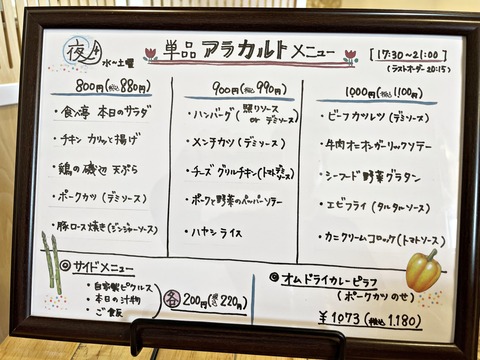 夜 水~土曜
単品 アラカルト メニュー
[17:30~21:00]
(ラストオーダー 20:15)
800円(税込880円)
・食べ亭 本日のサラダ
・チキン カリッと揚げ
・鶏の磯辺 天ぷら
・ポークカツ (デミソース)
・豚ロース焼き(ジンジャーソース)
900円(税込990円)
・ハンバーグ(照りソース or デミソース)
・メンチカツ (デミソース)
・チーズグリルチキン(トマトデミソース)
・ポークと野菜のペッパーソテー
・ハヤシライス
1,000円(税込1,100円)
・ビーフカツレツ (デミソース)
・牛肉オニオンガーリックソテー
・シーフード野菜グラタン
・エビフライ (タルタルソース)
・カニクリームコロッケ(トマトソース)
◎サイドメニュー
・自家製ピクルス
・本日の汁物
・ご飯
各 200円(税込220円)
◎オムドライカレーピラフ
(ポークカツ のせ)
¥1,073 (税込1,180)